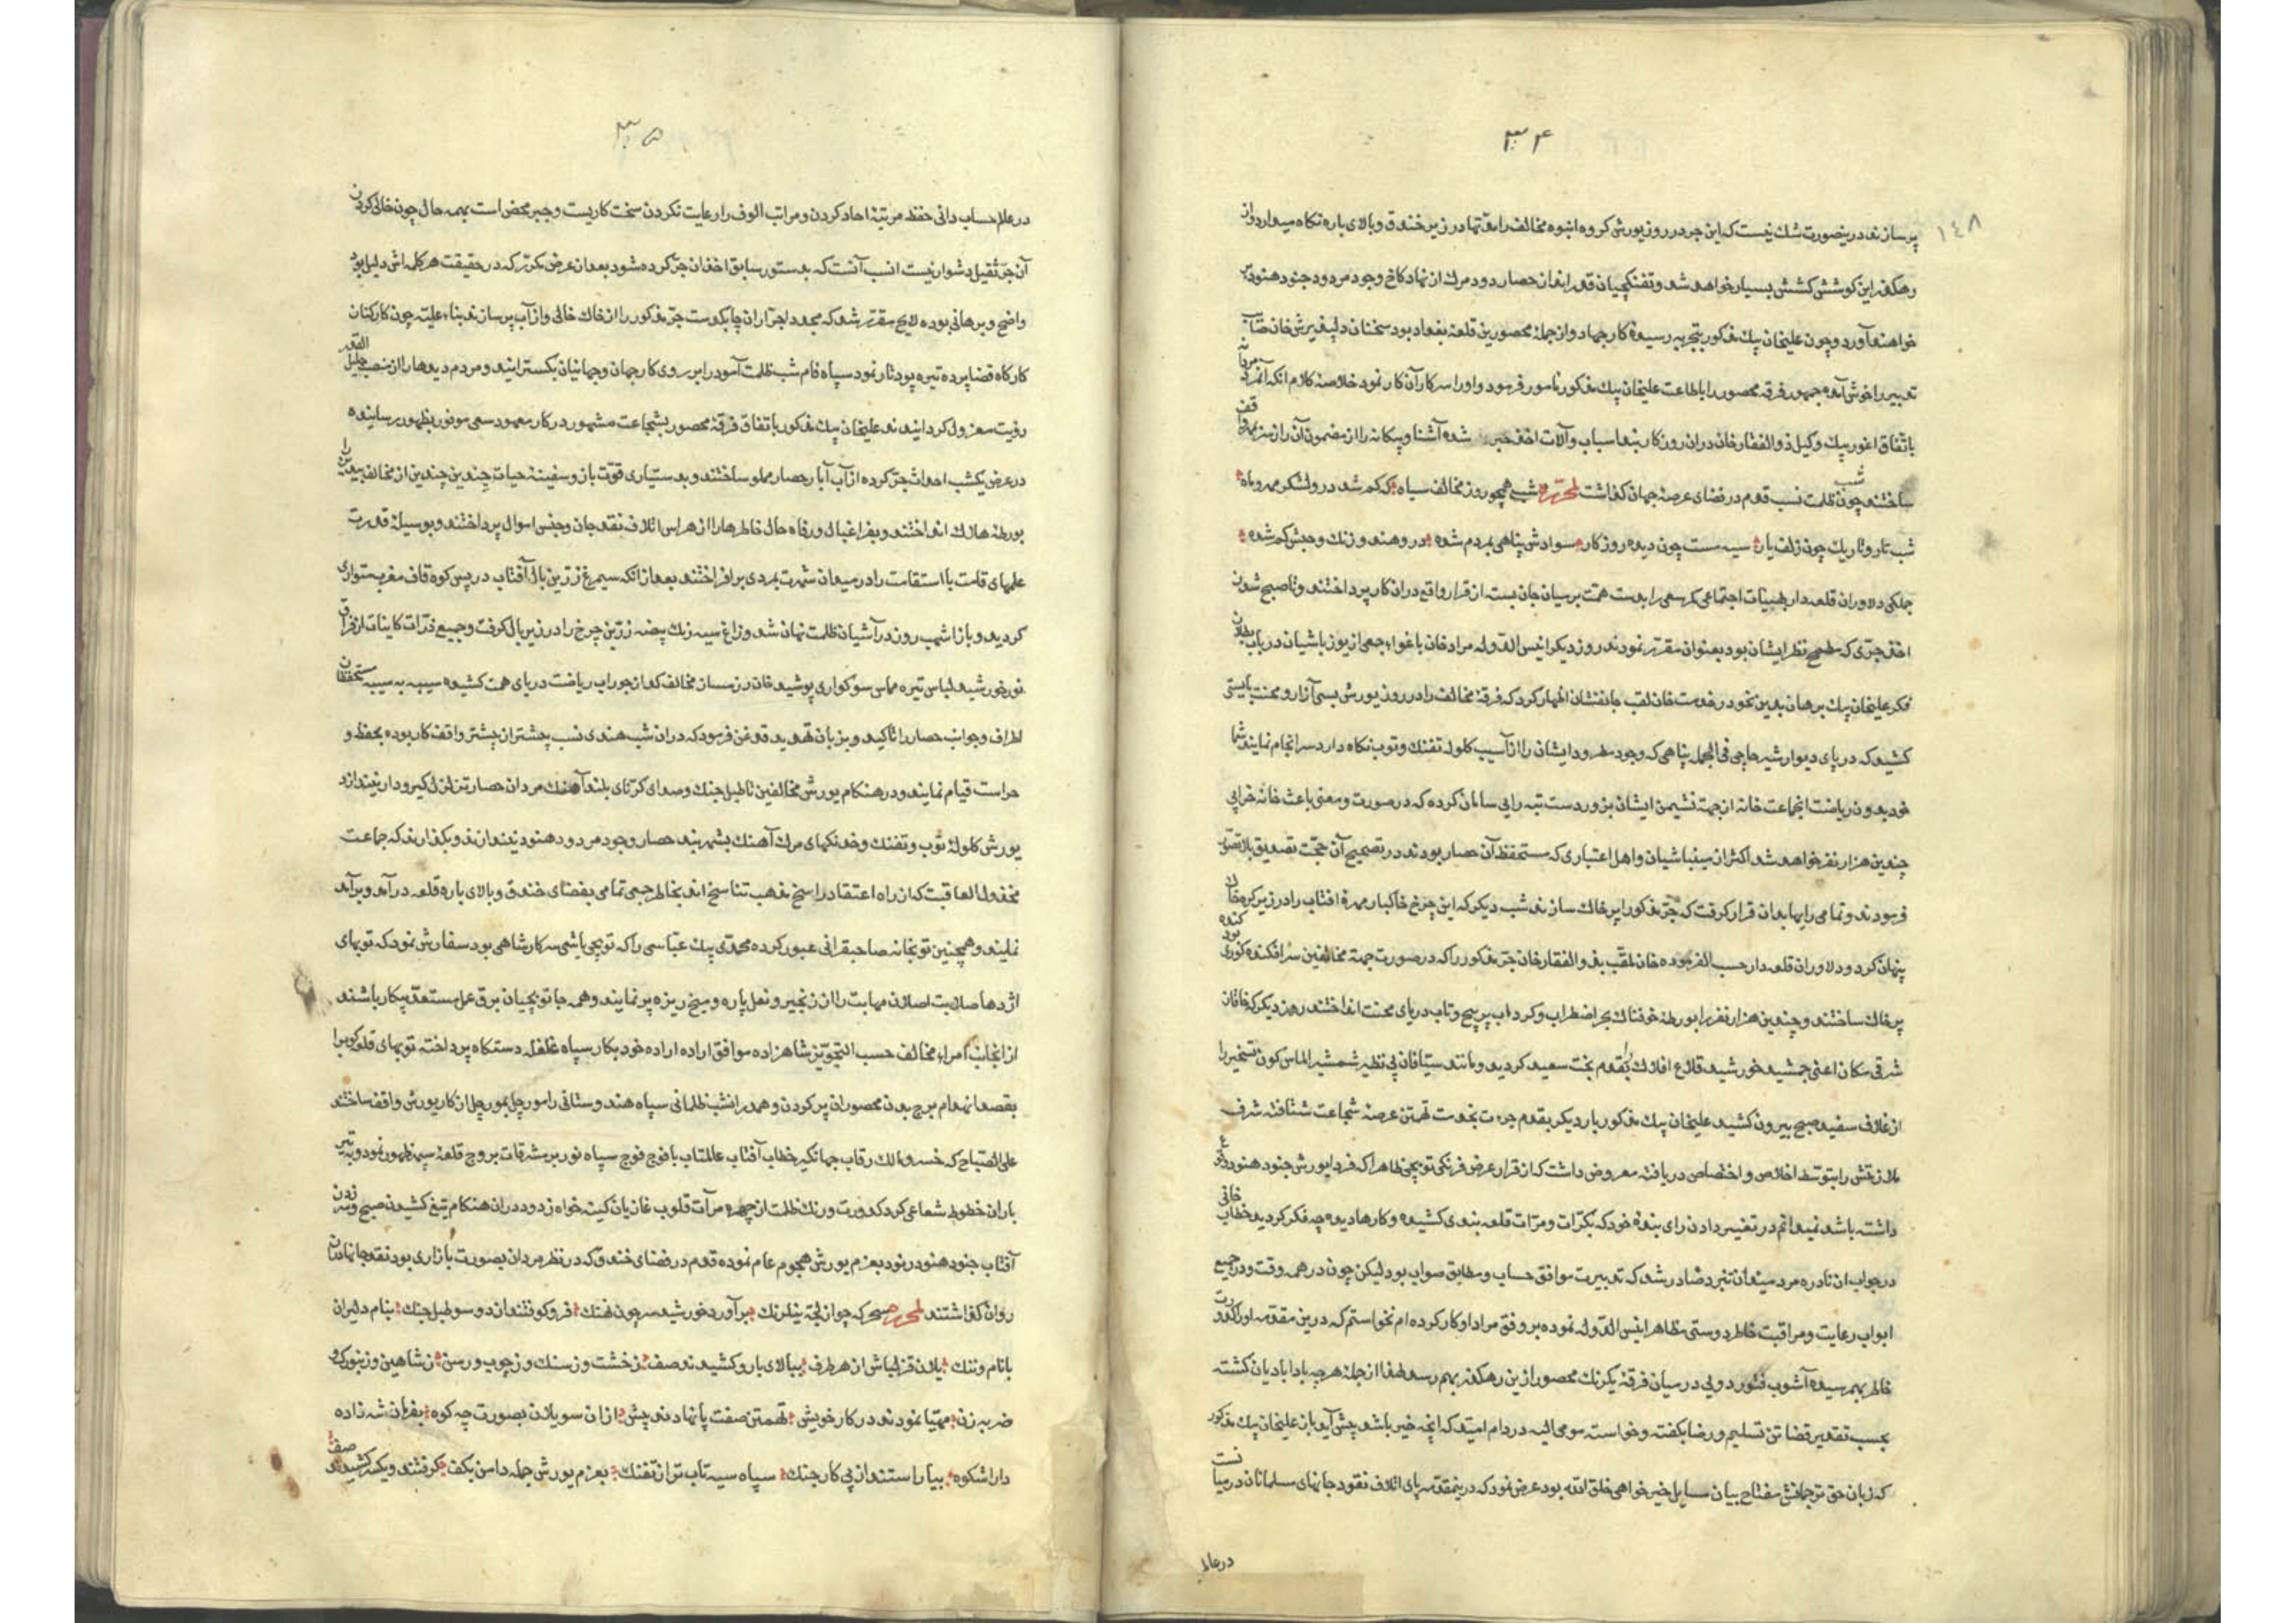 ۳۴
۱۴۸
پر سازند درینصورت شك نیست كه این جر در روز یورش كروه انبوه مخالف را مدتها در زیر خندق و بالای باره نكاه میدارد و از
رهكذر این كوشش كشش بسیار خواهد شد و تفنكچیان قدر انداز حصار دود مرك از نهاد كاخ وجود مردود جنود هنود بر
خواهند آورد و چون علیخان بیك مذكور بتجربه رسیدۀ كار جهاد و از جملۀ محصورین قلعۀ بغداد بود سخنان دلپذیرش خان صائب
تدبیر را خوش آمده جمهور فرقه محصور را باطاعت علیخان بیك مذكور مامور فرمود و او را سركار آن كار نمود خلاصۀ كلام انكه
باتفاق اغور بیك وكیل ذوالفقارخان دران روز كار بند اسباب و آلات اخذ جر شده آشنا و بیكانه را از مضمون آن راز سر بمهر واقف
ساختند چون شب ظلمت نسب قدم در فضای عرصۀ جهان كذاشت لمحرره شبی همچو روز مخالف سیاه كه كم شد درو لشكر مهر و ماه
شب تار و تاریك چون زلف یار سیه مست چون دیده روزكار سوادش پناهی بمردم شده درو هند و زنك و حبش كم شده
جملكی دلاوران قلعه دار بهیئات اجتماعی كمر سعی را بدست همت بر میان جان بسته از قرار واقع دران كار پرداختند و تا صبح شدن
اخذ جری كه مطمح نظر ایشان بود بعنوان مقرر نمودند روز دیكر انیس الدوله مراد خان باغواء جمعی از یوزباشیان در باب بطلان
فكر علیخان بیك برهان بدین نحو در خدمت خان لقب جانفشان اظهار كرد كه فرقۀ مخالف را در روز یورش بسی آزار و محنت بایستی
كشید كه در پای دیوار شیر حاجی فی الجمله پناهی كه وجود مطرود ایشان را از آسیب كلوله تفنك و توپ نكاه دارد سرانجام نمایند شما
خود بدون ریاضت انجماعت خانه از جهة نشیمن ایشان بزور دست تبه رایی سامان كرده كه در صورت و معنی باعث خانه خرابی
چندین هزار نفر خواهد شد اكثر از مینباشیان و اهل اعتباری كه مستحفظ آن حصار بودند در تصحیح آن حجت تصدیق بلا تصور
فرمودند و تمامی رایها بدان قرار كرفت كه جر مذكور را پر خاك سازند شب دیكر كه این چرخ خاكبار مهرۀ افتاب را در زیر كره خاك
پنهان كرد و دلاوران قلعه دار حسب الفرموده خان ملقب بذوالفقارخان جر مذكور را كه در صورت جهة مخالفین سرافكنده كوری كنده بود
پر خاك ساختند و چندین هزار نفر را بورطۀ خوفناك بحر اضطراب و كرداب پر پیچ و تاب دریای محنت انداختند روز دیكر كه خاقان
شرقی مكان اعنی جمشید خورشید قلاع افلاك را بقدم بخت سعید كردید و مانند سیتافان بی نظیر شمشیر الماس كون تسخیر را
از غلاف سفیده صبح بیرون كشید علیخان بیك مذكور بار دیكر بقدم جرءت بخدمت تهمتن عرصۀ شجاعت شتافته شرف
ملازمتش را بتوسط اخلاص و اختصاص دریافته معروض داشت كه از قرار عرض فرنكی توپچی ظاهرا كه فردا یورش جنود هنود وقوع
داشته باشد نمیدانم در تغییر دادن رای بندۀ خود كه بكرات و مرات قلعه بندی كشیده و كارها دیده چه فكر كردید خطاب خانی
در جواب ان نادره مرد میدان نبرد صادر شد كه تدبیرت موافق حساب و مطابق صواب بود لیكن چون در همه وقت و در جمیع
ابواب رعایت و مراقبت خاطر دوستی مظاهر انیس الدوله نموده بر وفق مراد او كار كرده ام نخواستم كه درین مقدمه او را كدورت
خاطر بهم رسیده آشوب فتور دویی در میان فرقۀ یكرنك محصور ازین رهكذر بهم رسد لهذا از جملۀ هر چه بادا باد بان كشته
بحسب تقدیر قضا تن تسلیم و رضا بكفته و خواسته مومی الیه در دادم امید كه انچه خیر باشد پیش آید بان علیخان بیك مذكور
كه زبان حق ترجمانش مفتاح بیان مسایل خیر خواهی خلق الله بود عرض نمود كه درینمقدمه پای اتلاف نقود جانهای مسلمانان در میانست
در علم
۳۵
در علم حساب دانی حفظ مرتبۀ احاد كردن و مراتب الوف را رعایت نكردن سخت كاریست و جبر محض است بهمه حال چون خالی كردن
آن جر ثقیل دشوار نیست انسب آنست كه بدستور سابق اخذ ان جر كرده شود بعد از عرض مكرر كه در حقیقت هر كلمه اش دلیل بود
واضح و برهانی بوده لایح مقرر شد كه مجددا جر آران چابكدست جر مذكور را از خاك خالی و از آب پر سازند بناء علیه چون كاركنان
كاركاه قضا پرده تیره پود تار نمود سیاه فام شب ظلمت آمود را بر روی كار جهان و جهانیان بكسترانیدند و مردم دیدها را از منصب جلیل القدر
رؤیت معزول كردانیدند علیخان بیك مذكور باتفاق فرقۀ محصور بشجاعت مشهور در كار معهود سعی موفور بظهور رسانیده
در عرض یكشب احداث جر كرده از آب آبار حصار مملو ساختند و بدستیاری قوت بازو سفینۀ حیات چندین چندین از مخالف بیدین را
بورطۀ هلاك انداختند و بفراغبال و رفاه حال خاطرها را از هراس اتلاف نقد جان و جنس اموال پرداختند و بوسیلۀ قدرت
علمهای قامت با استقامت را در میدان شهرت بمردی برافراختند بعد از انكه سیمرغ زرین بال آفتاب در پس كوه قاف مغرب متواری
كردید و باز اشهب روز در آشیان ظلمت نهان شد و زاغ سیه رنك بیضه زرین چرخ را در زیر بال كرفت و جمیع ذرات كاینات از فراق
نور خورشید لباس تیره مماس سوكواری پوشید خان رزمساز مخالف كداز جوراب ریاضت در پای همت كشیده سیبه به سیبه مستحفظان
اطراف و جوانب حصار را تاكید و بزبان تهدید قدغن فرمود كه دران شب هندی نسب بیشتر از پیشتر واقف كار بوده بحفظ و
حراست قیام نمایند و در هنكام یورش مخالفین تا طبل جنك و صدای كرنای بلند آهنك مردان حصار تزلزل كیرودار نیندازد
یورش كلولۀ توپ و تفنك و خدنكهای مرك آهنك بشهربند حصار وجود مردود هنود نیندازند و بكذارند كه جماعت
مخذول العاقبت كه از راه اعتقاد راسخ مذهب تناسخ اند بخاطرجمعی تمامی بفضای خندق و بالای باره قلعه درآمد و برآمد
نمایند و همچنین توپخانه صاحبقرانی عبور كرده محمدی بیك عباسی را كه توپچی باشی سركار شاهی بود سفارش نمود كه توپهای
اژدها صلابت اصلان مهابت را از زنجیر و نعل پاره و میخ ریزه پر نمایند و همه جا توپچیان برق عمل مستعد پیكار باشند
از انجانب امراء مخالف حسب التجویز شاهزاده موافق اراده اراده خود بكار سپاه غلغله دستكاه پرداخته توپهای قلعه كوب را
بقصد انهدام برج بدن محصوران پر كردن و هم در انشب ظلمانی سپاه هندوستانی را مورچل بمورچل از كار یورش واقف ساختند
علی الصباح كه خسرو مالك رقاب جهانكیر خطاب آفتاب عالمتاب با فوج فوج سپاه نور بر مشرقات بروج قلعۀ سپهر ظهور نمود و به تیر
باران خطوط شعاعی كرد كدورت و رنك ظلمت از چهره مرآت قلوب غازیان كینه خواه زدود دران هنكام تیغ كشیدن صبح و سر زدن
آفتاب جنود هنود مردود بعزم یورش هجوم عام نموده قدم در فضای خندق كه در نظر مردان بصورت بازاری بود نقد جانهاشان
روان كذاشتند لمحرره صبحر كه چو از لجۀ نیلرنك برآورد خورشید سر چون نهنك فرو كوفتند از دو سو طبل جنك بنام دلیران
با نام و ننك یلان قزلباش از هر طرف ببالای بارو كشیدند صف ز خشت و ز سنك و ز چوب و رسن ز شاهین و زنبورك و
ضربه زن مهیا نمودند در كار خویش تهمتن صفت پا نهادند پیش از ان سو یلان بصورت چه كوه بفرمان شه زاده
دارا شكوه بیاراستند از پی كار جنك سپاه سیه تاب تر از تفنك بعزم یورش جمله دامن بكف كرفتند و یكسر كشیدند صف